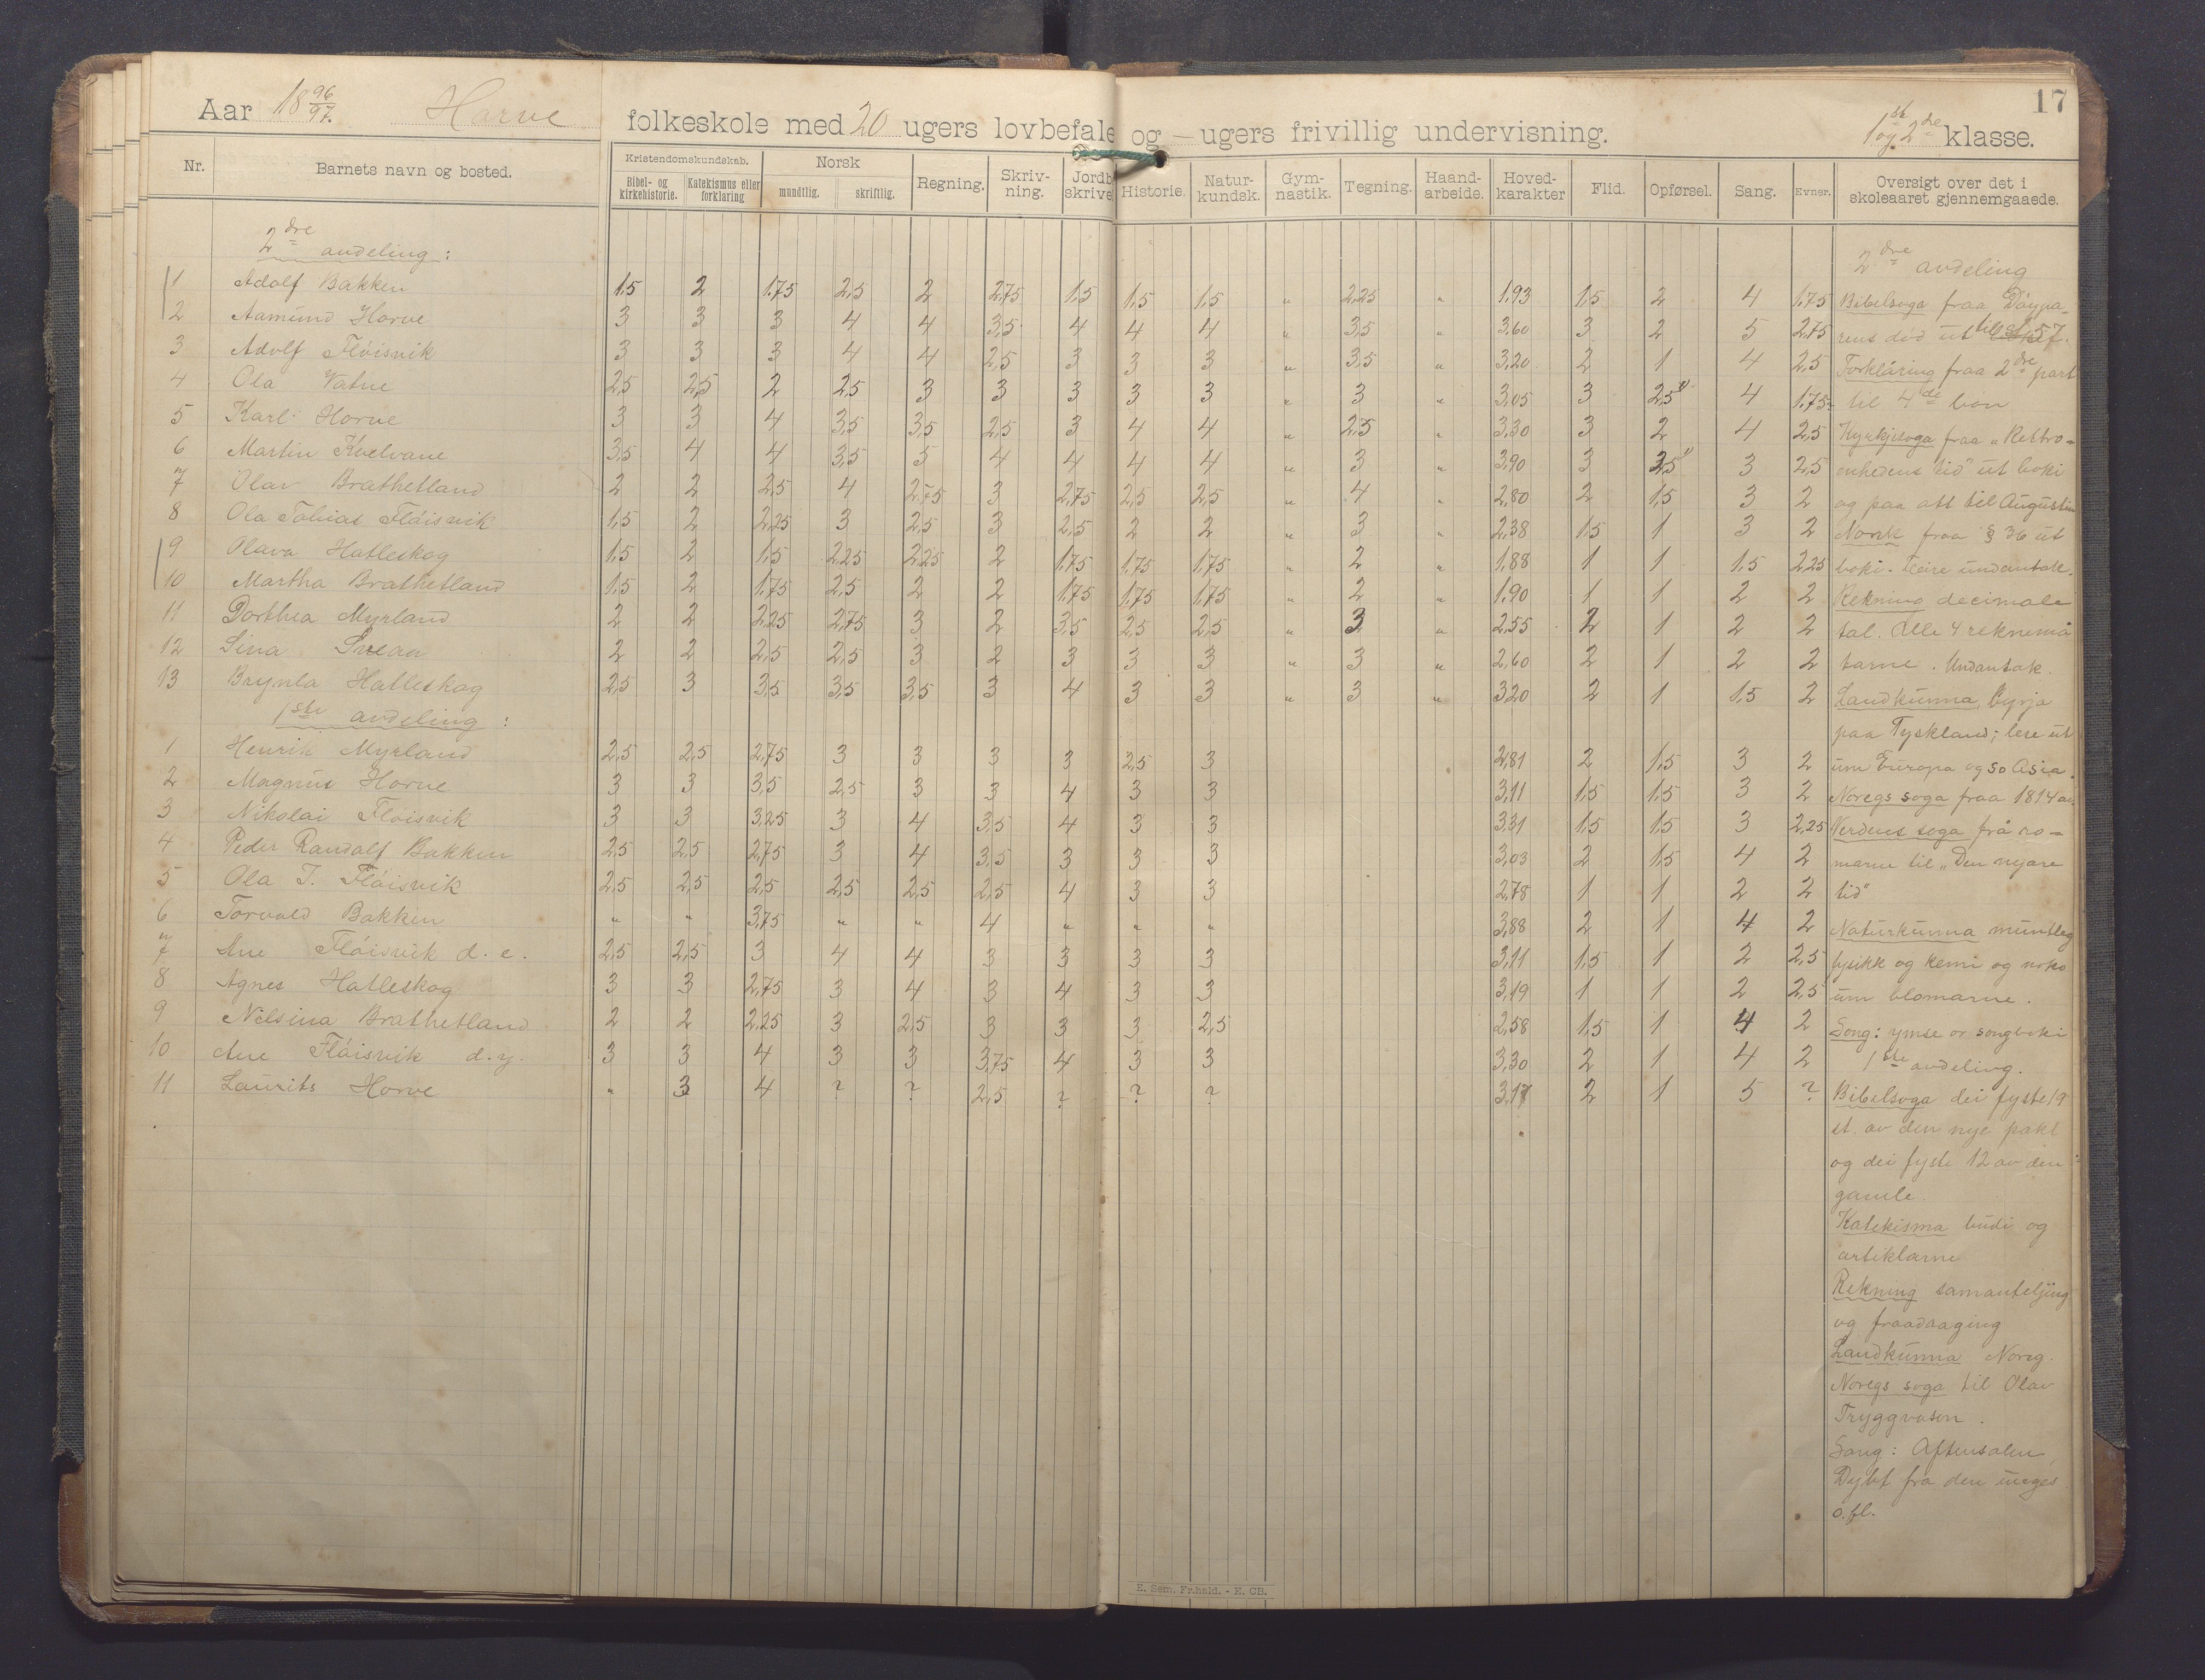 Aar 18 96/97. Horve folkeskole med 20 ugers lovbefale og — ugers frivillig undervisning. 1ste og 2de klasse. 17
Nr. Barnets navn og bosted. Kristendomskundskab. Bibel- og kirkehistorie. Katekismus eller forklaring Norsk mundtlig. skriftlig. Regning. Skriv-ning. Jordb skrive Historie. Natur-kundsk. Gym-nastik. Tegning. Haand-arbeide. Hoved-karakter Flid. Opførsel. Sang. Evner. Oversigt over det i skoleaaret gjennemgaaede.
2dre avdeling:
1 Adolf Bakken 1,5 2 1,75 2,5 2 2,75 1,5 1,5 1,5 " 2,25 " 1,93 1,5 2 4 1,75
2 Aamund Horve 3 3 3 4 4 3,5 4 4 4 " 3,5 " 3,60 3 2 5 2,75
3 Adolf Flóisvik 3 3 3 4 4 2,5 3 3 3 " 3,5 " 3,20 2 1 4 2,5
4 Ola Vatne 2,5 2,5 2 2,5 3 3 3 3 3 " 3 " 3,05 3 2,5 4 1,75
5 Karl Horve 3 3 4 3,5 3,5 2,5 3 4 4 " 2,5 " 3,30 3 2 4 2,5
6 Martin Kvelvane 3,5 4 4 3,5 5 4 4 4 4 " 3 " 3,90 3 3,5 3 2,5
7 Olav Brathetland 2 2 2,5 4 2,75 3 2,75 2,5 2,5 " 4 " 2,80 2 1,5 3 2
8 Ola Tobias Flóisvik 1,5 2 2,25 3 2,5 3 2,5 2 2 " 3 " 2,38 1,5 1 3 2
9 Olava Hatleskog 1,5 2 1,5 2,25 2,25 2 1,75 1,75 1,75 " 2 " 1,88 1 1 1,5 2,25
10 Martha Brathetland 1,5 2 1,75 2,5 2 2 1,75 1,75 1,75 " 2 " 1,90 1 1 2 2
11 Dorthea Myrland 2 2 2,25 2,75 3 2 3,5 2,5 2,5 " 3 " 2,55 2 1 2 2
12 Sina Sveaa 2 2 2,5 2,5 3 2 3 3 3 " 3 " 2,60 2 1 2 2
13 Brynla Hatleskog 2,5 3 3,5 3,5 3,5 3 4 3 3 " 3 " 3,20 2 1 1,5 2
1ste avdeling:
1 Henrik Myrland 2,5 2,5 2,75 3 3 3 3 2,5 3 2,81 2 1,5 3 2
2 Magnus Horve 3 3 3,5 2,5 3 3 4 3 3 3,11 1,5 1,5 3 2
3 Nikolai Flóisvik 3 3 3,25 3 4 3,5 4 3 3 3,31 1,5 1,5 3 2,25
4 Peder Randolf Bakken 2,5 2,5 2,75 3 4 3,5 3 3 3 3,03 2 1,5 4 2
5 Ola T. Flóisvik 2,5 2,5 2,5 2,5 2,5 2,5 4 3 3 2,78 1 1 2 2
6 Torvald Bakken " " 3,75 " " 4 " " " 3,88 2 1 4 2
7 Ane Flóisvik d. e. 2,5 2,5 3 4 4 3 3 3 3 3,11 1,5 1 2 2,5
8 Agnes Hatleskog 3 3 2,75 3 4 3 4 3 3 3,19 1 1 2 2,5
9 Nilsina Brathetland 2 2 2,25 3 2,5 3 3 3 2,5 2,58 1,5 1 4 2
10 Ane Flóisvik d. y. 3 3 4 3 3 3,75 4 3 3 3,30 2 1 4 2
11 Laurits Horve " 3 4 ? ? 2,5 ? ? ? 3,17 2 1 5 ?
2dre avdeling
Bibelsoga fraa Dóypa-
rens død ut til st. 57.
Forklåring fraa 2dre part
til 4de bon
Kyrkjesoga fraa "Rettro-
enhedens tid" ut boki
og paa att til Augustin
Norsk fraa § 36 ut
boki. Fleire undantak.
Rekning decimale
tal. Alle 4 reknemå
tarne. Undantak.
Landkunna, byrja
paa Tyskland; lese ut
um Europa og so Asia.
Noregs soga fraa 1814 av
Verdens soga frå ro-
marne til "Den nyare
tid"
Naturkunna muntleg
fysikk og kemi og noko
um blomarne.
Song: ymse or songboki
1ste avdeling.
Bibelsoga dei fyste 19
st. av den nye pakt
og dei fyste 12 av den
gamle.
Katekisma budi og
artiklarne
Rekning samanteljing
og fraadraging
Landkunna Noreg.
Noregs soga til Olav
Tryggvason.
Sang: Aftensolen
Dybt fra den
o. fl.
E. Sem. Fr.hald. - E. CB.